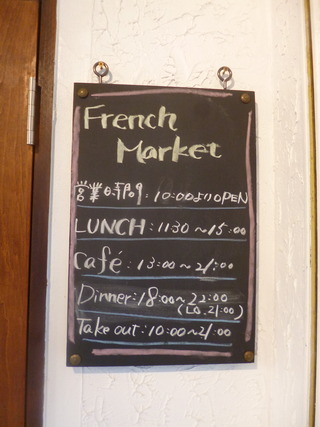 French
Market
営業時間: 10:00より OPEN
LUNCH: 11:30～15:00
Café: 13:00～21:00
Dinner: 18:00～22:00
(LO.21:00)
Take out: 10:00～21:00